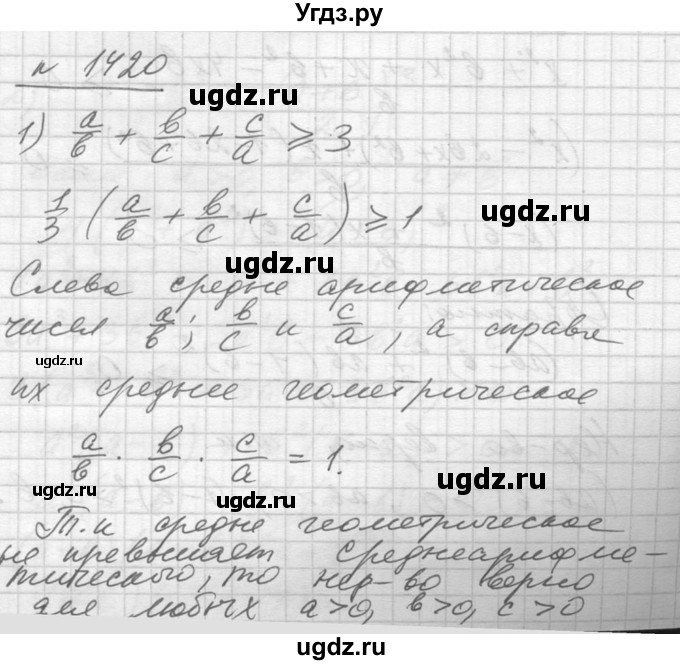 Угдз.ру
№ 1420
ugdz.ru
1) a/в + в/c + c/a ⩾ 3
1/3 (a/в + в/c + c/a) ⩾ 1
ugdz.ru
ugdz.ru
Слева средне арифметическое
чисел a/в; в/c и c/a, а справа
ugdz.ru
их среднее геометрическое
ugdz.ru
a/в · в/c · c/a = 1.
ugdz.ru
ugdz.ru
Т.к средне геометрическое
не превышает среднеарифме-
тического, то нер-во верно
для любых a>0, в>0, c>0
ugdz.ru
ugdz.ru